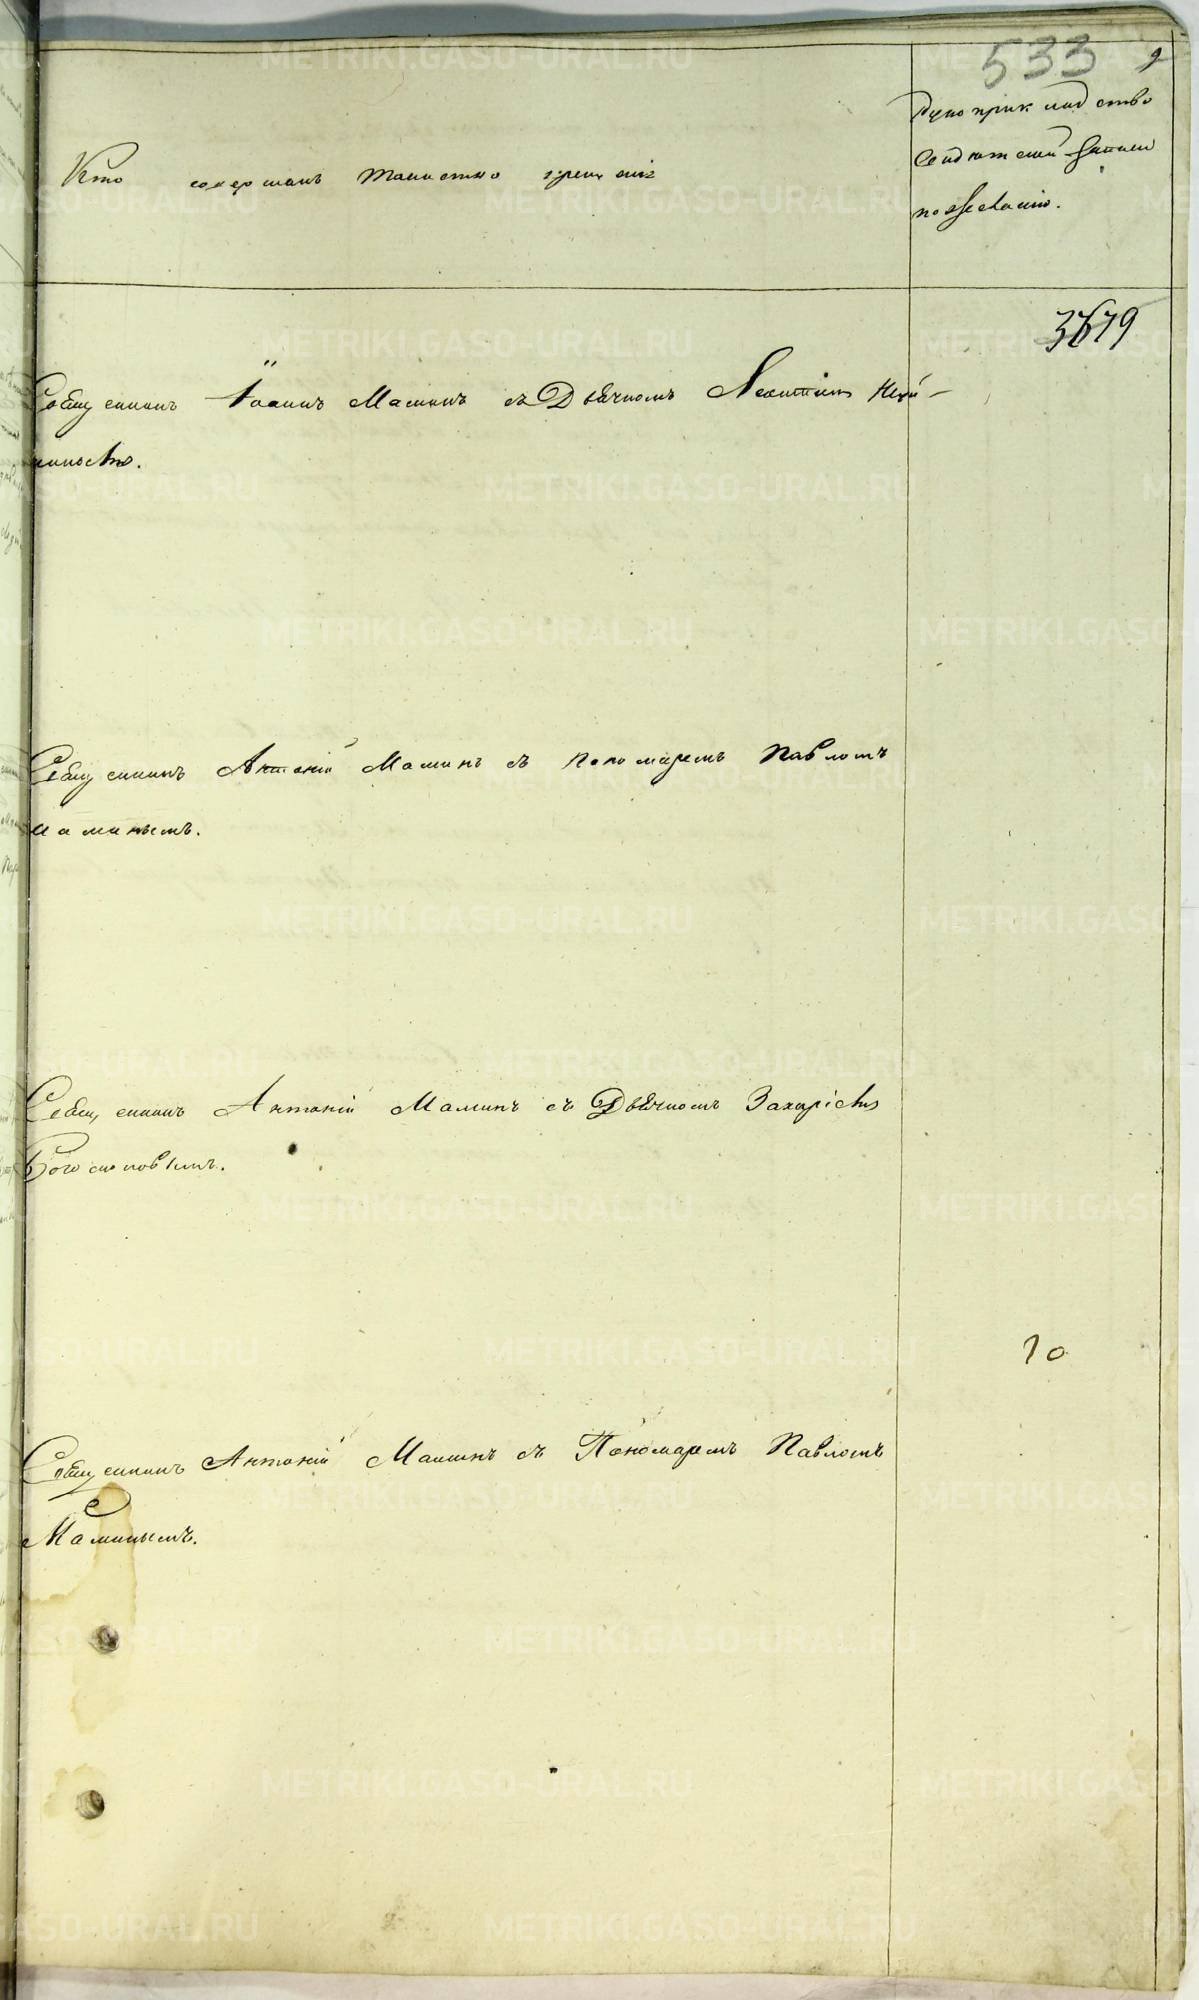 533 9
Кто совершалъ таинство крещенія
Рукоприкладство
свидѣтелей записи
по желанію.
3679
Священникъ Іоаннъ Маминъ съ Дьячкомъ
Священникъ Антоній Маминъ съ Пономаремъ Павломъ
Маминымъ.
Священникъ Антоній Маминъ съ Дьячкомъ Захаріею
Богословымъ.
10
Священникъ Антоній Маминъ съ Пономаремъ Павломъ
Маминымъ.
METRIKI.GASO-URAL.RU